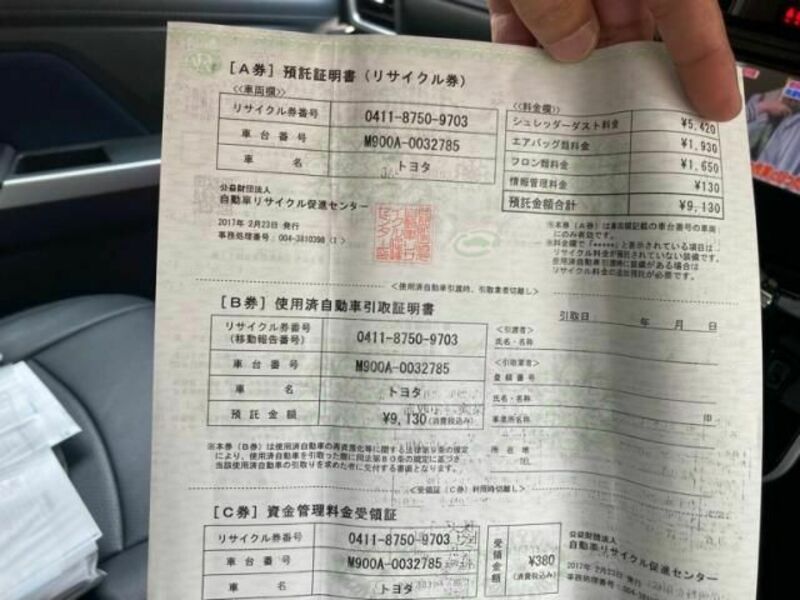 [A券] 預託証明書(リサイクル券)
<<車両欄>>
リサイクル券番号 0411-8750-9703
車台番号 M900A-0032785
車名 トヨタ
<<料金欄>>
シュレッダーダスト料金 ¥5,420
エアバッグ類料金 ¥1,930
フロン類料金 ¥1,650
情報管理料金 ¥130
預託金額合計 ¥9,130
公益財団法人
自動車リサイクル促進センター
2017年 2月23日 発行
事務処理番号:004-3810398 (1)
※本券(A券)は車両欄記載の車台番号の車両
にのみ有効です。
※料金欄で「*****」と表示されている項目は
リサイクル料金が預託されていない装備です。
使用済自動車引渡時に装備がある場合は
リサイクル料金の追加預託が必要です。
<使用済自動車引渡時、引取業者切離し>
[B券] 使用済自動車引取証明書
引取日 年 月 日
リサイクル券番号
(移動報告番号) 0411-8750-9703
車台番号 M900A-0032785
車名 トヨタ
預託金額 ¥9,130(消費税込み)
<引渡者>
氏名・名称
<引取業者>
登録番号
氏名・名称
事業所名称 印
所在地
TEL
※本券(B券)は使用済自動車の再資源化等に関する法律第9条の規定
により、使用済自動車を引取った際に同法第80条の規定に基づき
当該使用済自動車の引取りを求めた者に交付する書面となります。
<受領証(C券)利用時切離し>
[C券] 資金管理料金受領証
リサイクル券番号 0411-8750-9703
車台番号 M900A-0032785
車名 トヨタ
受領金額 ¥380
(消費税込み)
公益財団法人
自動車リサイクル促進センター
2017年 2月23日 発行